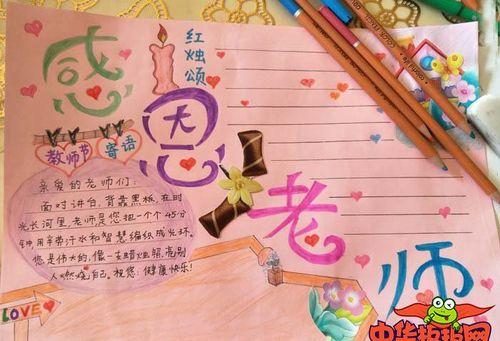 感恩老师
红烛颂
教师节 寄语
亲爱的老师们：
面对讲台，背靠黑板，在时
光长河里，老师是您把一个个45分
钟用辛勤汗水和智慧编织成光环。
您是伟大的，像一支蜡烛照亮别
人燃烧自己。祝您：健康快乐！
LOVE
中华板报网